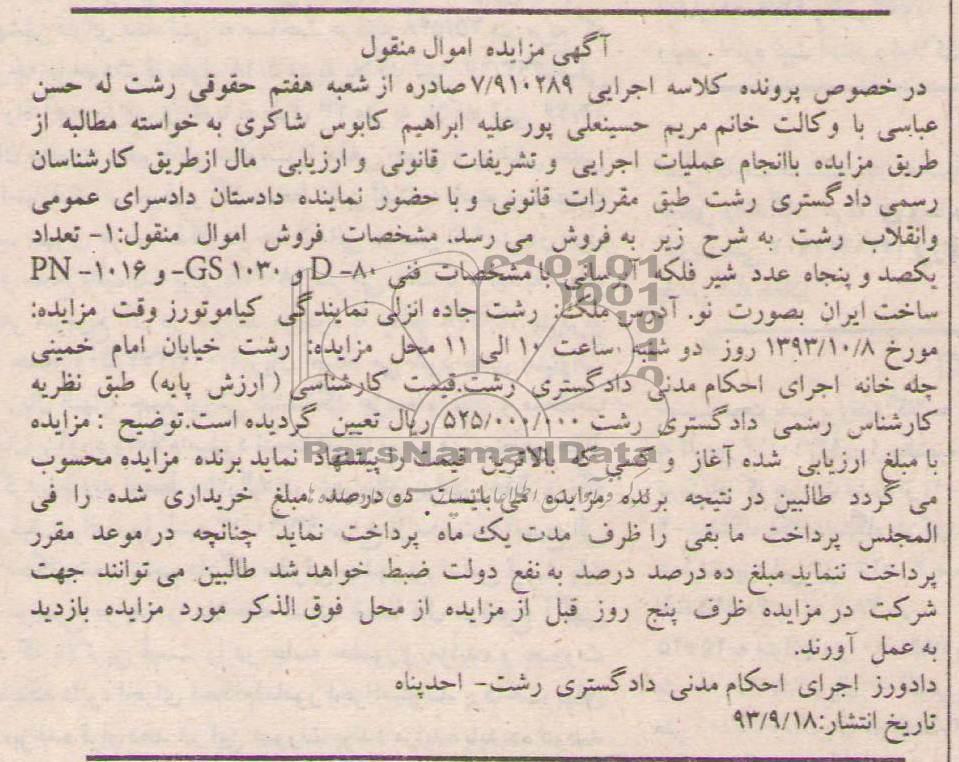 آگهی مزایده اموال منقول
در خصوص پرونده کلاسه اجرایی ۷/۹۱۰۲۸۹ صادره از شعبه هفتم حقوقی رشت له حسن
عباسی با وکالت خانم مریم حسینعلی پور علیه ابراهیم کابوس شاکری به خواسته مطالبه از
طریق مزایده باانجام عملیات اجرایی و تشریفات قانونی و ارزیابی مال ازطریق کارشناسان
رسمی دادگستری رشت طبق مقررات قانونی و با حضور نماینده دادستان دادسرای عمومی
وانقلاب رشت به شرح زیر به فروش می رسد. مشخصات فروش اموال منقول:۱- تعداد
یکصد و پنجاه عدد شیر فلکه آبرسانی با مشخصات فنی D-۸۰ و GS ۱۰۳۰- و PN -۱۰۱۶
ساخت ایران بصورت نو. آدرس ملک: رشت جاده انزلی نمایندگی کیاموتورز وقت مزایده:
مورخ ۱۳۹۳/۱۰/۸ روز دو شنبه ساعت ۱۰ الی ۱۱ محل مزایده: رشت خیابان امام خمینی
چله خانه اجرای احکام مدنی دادگستری رشت.قیمت کارشناسی (ارزش پایه) طبق نظریه
کارشناس رسمی دادگستری رشت ۵۲۵/۰۰۰/۰۰۰ ریال تعیین گردیده است.توضیح : مزایده
با مبلغ ارزیابی شده آغاز و کسی که بالاترین قیمت را پیشنهاد نماید برنده مزایده محسوب
می گردد طالبین در نتیجه برنده مزایده می بایست ده درصد مبلغ خریداری شده را فی
المجلس پرداخت مابقی را ظرف مدت یک ماه پرداخت نماید چنانچه در موعد مقرر
پرداخت ننماید مبلغ ده درصد درصد به نفع دولت ضبط خواهد شد طالبین می توانند جهت
شرکت در مزایده ظرف پنج روز قبل از مزایده از محل فوق الذکر مورد مزایده بازدید
به عمل آورند.
دادورز اجرای احکام مدنی دادگستری رشت- احدپناه
تاریخ انتشار:۹۳/۹/۱۸
ParsNamadData